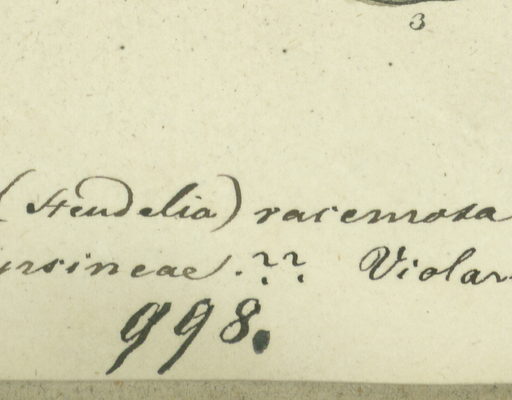 3
(Heudelia) racemosa
yrsineae. ?? Violar
998.